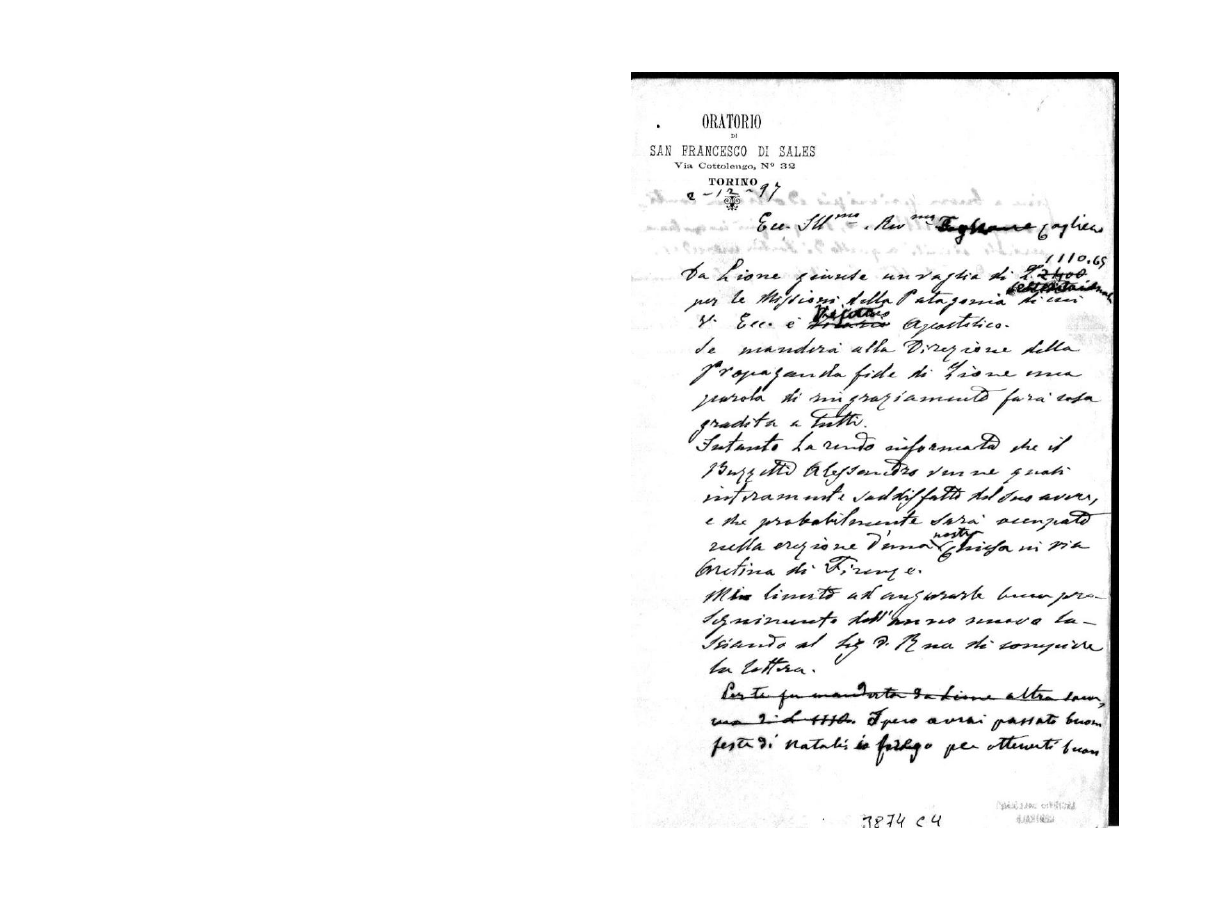 ORATORIO
DI
SAN FRANCESCO DI SALES
Via Cottolengo, Nº 32
TORINO
2-12-97
Ecc. Ill.mo e Rev.ms Cagliero
1110.65
Da Lione giunse un vaglia di L. 2400
per le Missioni della Patagonia di cui
V. Ecc. è Vicario Apostolico.
Se manderà alla Direzione della
Propaganda fide di Lione una
parola di ringraziamento farà cosa
gradita a tutti.
Intanto La rendo informata che il
Buzzetti Alessandro venne quasi
interamente soddisfatto del suo avere,
e che probabilmente sarà occupato
nella erezione d'una nostra Chiesa in via
Aretina di Firenze.
Mi limito ad augurarle buon pro-
seguimento dell'anno nuovo la-
sciando al Sig D. Rua di compiere
la lettera.
Per te fu mandata da Lione altra
Spero avrai passato buone
feste di Natale io prego per ottenerti buon
3874 C4